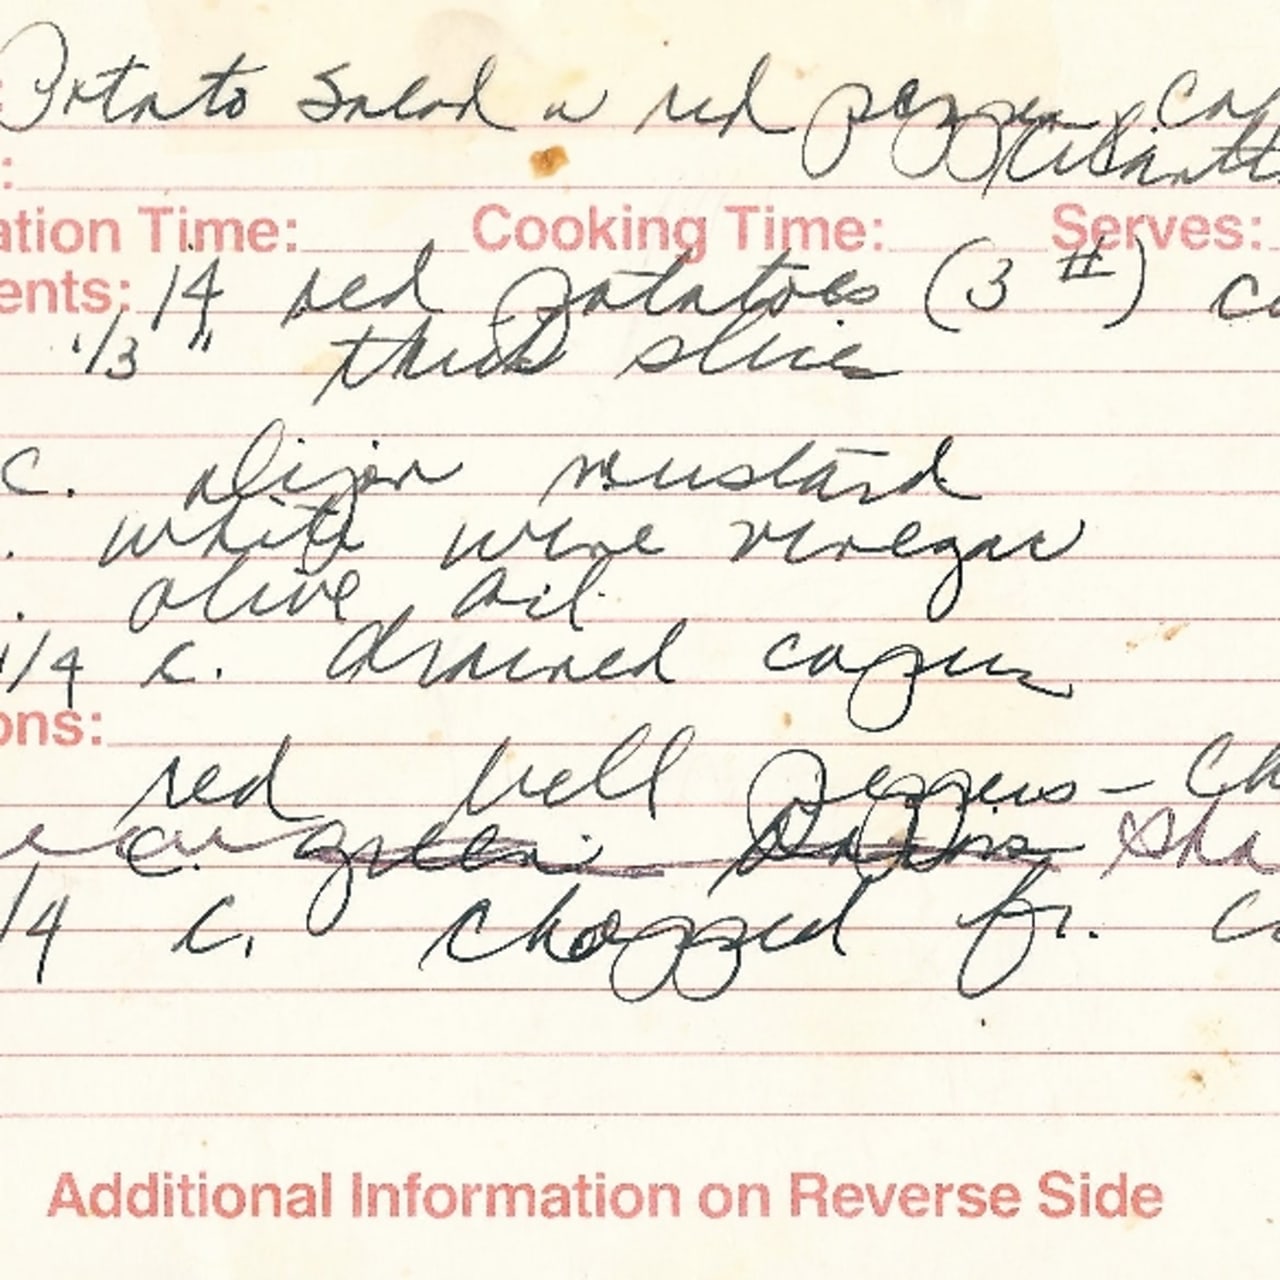 : Potato Salad w red pepper, Cap
& Cilantr
:
ation Time: Cooking Time: Serves:
ents: 14 red potatoes (3 #) cu
1/3 " thick slices
c. dijon mustard
. white wine vinegar
. olive oil
1/4 c. drained capers
ons:
red bell peppers - Ch
c. green onions Sha
/4 c. chopped fr. C
Additional Information on Reverse Side